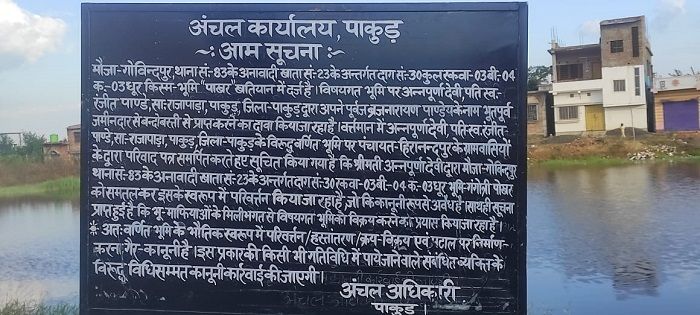 अंचल कार्यालय, पाकुड़
~: आम सूचना :~
मौजा-गोविन्दपुर, थाना सं:-83 के अनावादी खाता सं:-23 के अन्तर्गत दाग सं:-30 कुल रकवा-03 बी:-04
क:-03 धूर किस्म-भूमि "पोखर" खतियान में दर्ज है। विषयगत भूमि पर अन्नपूर्णा देवी, पति स्व.
रंजीत पाण्डे, सा:-राजापाड़ा, पाकुड़, जिला-पाकुड़ द्वारा अपने पूर्वज ब्रजनारायण पाण्डेय के नाम भूतपूर्व
जमीनदार से बन्दोबस्ती से प्राप्त करने का दावा किया जा रहा है। वर्तमान में अन्नपूर्णा देवी, पति-स्व. रंजीत-
पाण्डे, सा:-राजापाड़ा, पाकुड़, जिला-पाकुड़ के विरूद्ध वर्णित भूमि पर पंचायत-हिरानन्दपुर के ग्रामवासियों
के द्वारा परिवाद पत्र समर्पित करते हुए सूचित किया गया है कि श्रीमती अन्नपूर्णा देवी द्वारा मौजा-गोविंदपुर
थाना सं:-83 के अनावादी खाता सं:-23 के अन्तर्गत दाग सं:-30 रकवा-03 बी-04 क:-03 धूर भूमि गंगोत्री पोखर
को समतल कर इसके स्वरूप में परिवर्तन किया जा रहा है, जो कि कानूनी रूप से अवैध है। साथ ही सूचना
प्राप्त हुई है कि भू-माफियाओं के मिलीभगत से विषयगत भूमि को विक्रय करने का प्रयास किया जा रहा है।
* अतः वर्णित भूमि के भौतिक स्वरूप में परिवर्त्तन/हस्तांतरण/क्रय-विक्रय एवं पटाल पर निर्माण-
करना गैर-कानूनी है। इस प्रकार की किसी भी गतिविधि में पाये जाने वाले संबंधित व्यक्ति के
विरूद्ध विधिसम्मत कानूनी कार्रवाई की जाएगी।
अंचल अधिकारी
पाकुड़।